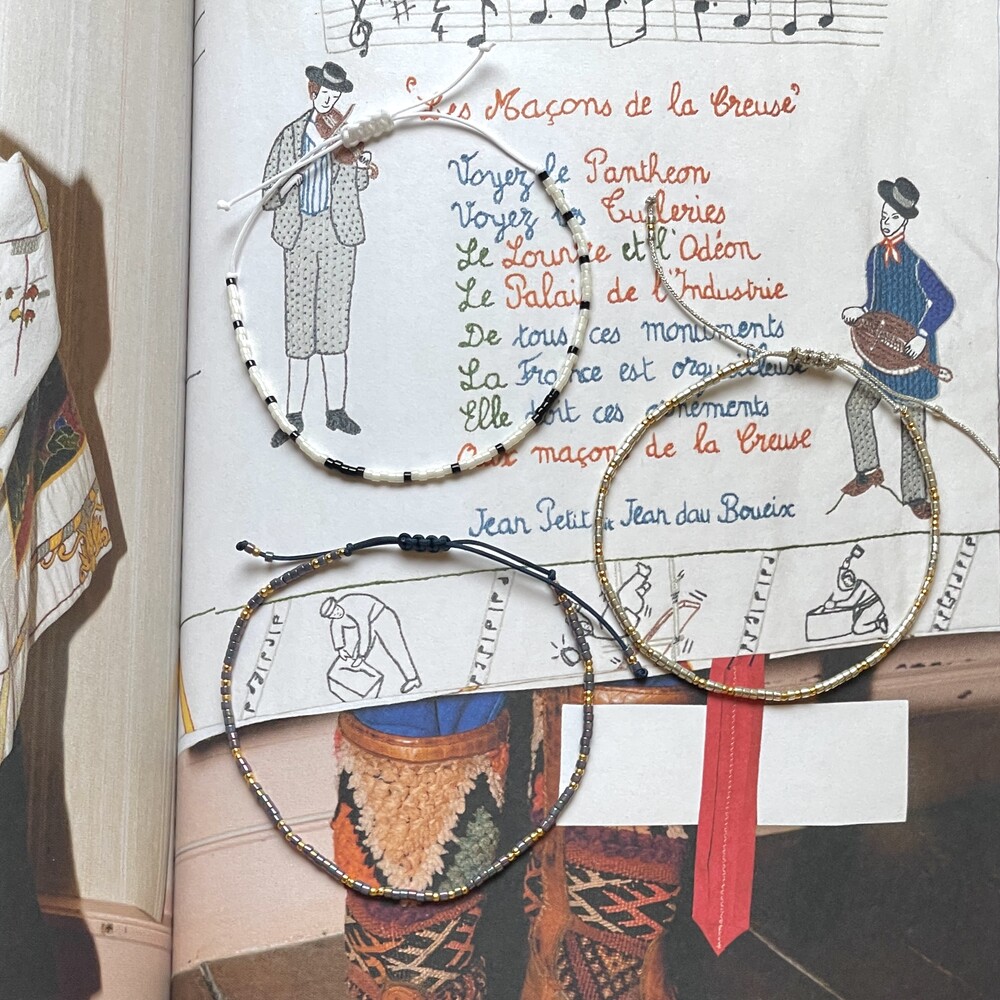 "Les Maçons de la Creuse"
Voyez le Pantheon
Voyez les Tuileries
Le Louvre et l'Odéon
Le Palais de l'Industrie
De tous ces monuments
La France est orgueilleuse
Elle doit ces ornements
Aux maçons de la Creuse
Jean Petit Jean dau Boueix